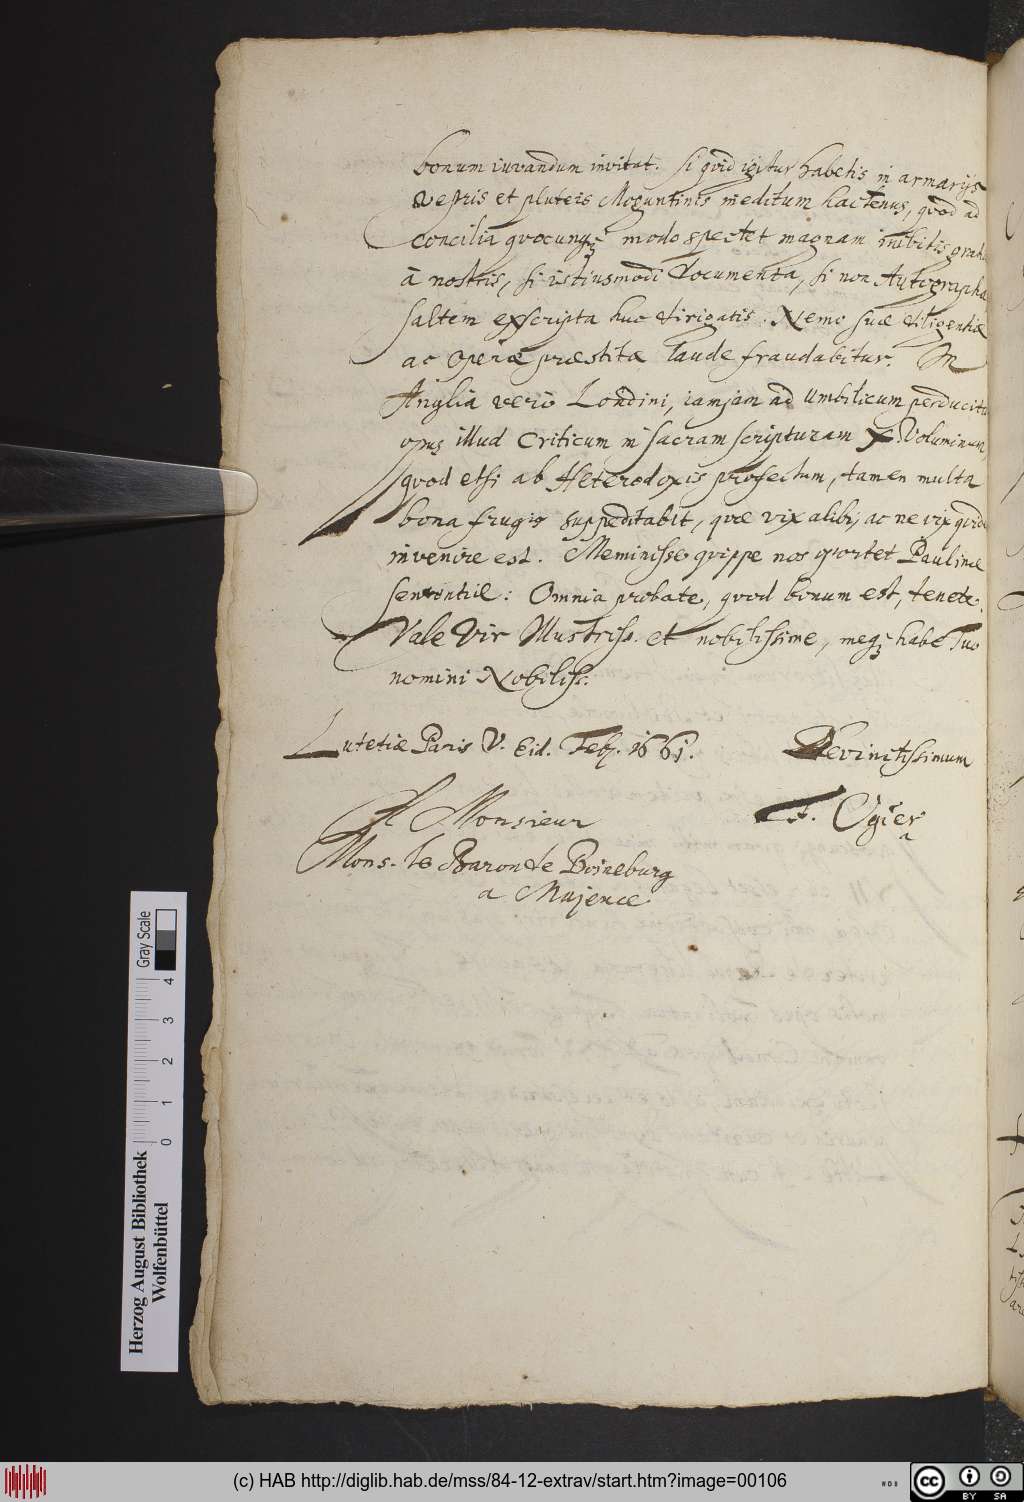 bonum iuvandum invitat. Si quid igitur habetis in armarijs
vestris et pluteis Moguntinis ineditum hactenus, quod ad
concilia quocunqꝫ modo spectet magnam inibitis grati
à nostris, si istiusmodi documenta, si non Autographa
saltem exscripta huc dirigatis. Nemo suæ diligentiæ
ac operæ præstitæ laude fraudabitur. In
Anglia verò Londini, iamjam ad Umbilicum perducitur
opus illud Criticum in sacram scripturam X Voluminum,
quod etsi ab Heterodoxis profectum, tamen multa
bona frugis suppeditabit, quæ vix alibi, ac ne vix quidē
invenire est. Meminisse quippe nos oportet Paulinæ
sententiæ: Omnia probate, quod bonum est, tenete.
Vale Vir Illustriss. et nobilissime, meqꝫ habe Tuo
nomini Nobiliss:
Lutetiæ Paris V. Eid. Feb. 1661. Devinctissimum
F. Ogier
A Monsieur
Mons. le Baron de Boineburg
a Majence
Herzog August Bibliothek
Wolfenbüttel
0 1 2 3 4
Gray Scale
(c) HAB http://diglib.hab.de/mss/84-12-extrav/start.htm?image=00106
WDB
cc BY SA